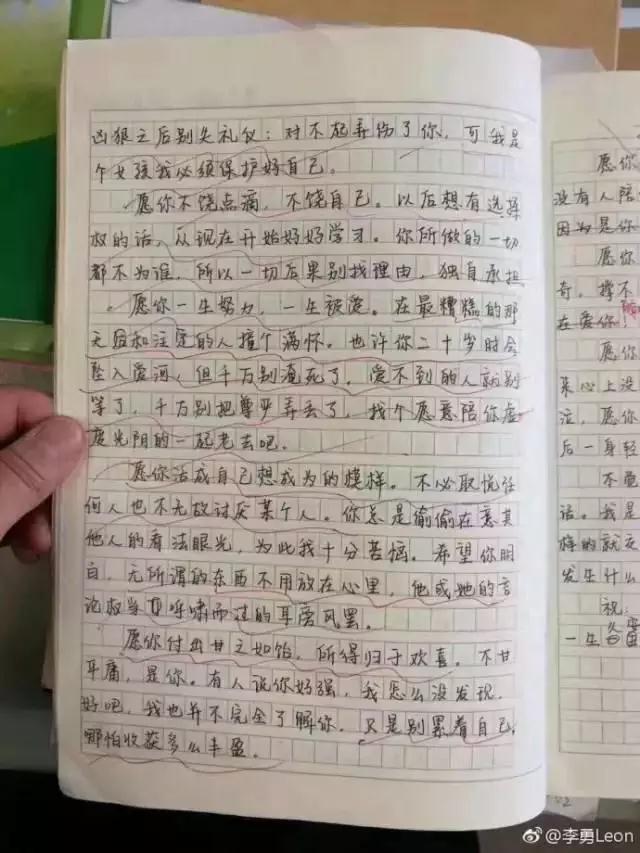 凶狠之后别失礼仪：对不起弄伤了你，可我是
个女孩我必须保护好自己。
愿你不饶点病，不饶自己。以后想有选择
权的话，从现在开始好好学习。你所做的一切
都不为谁，所以一切后果别找理由，独自承担
愿你一生努力，一生被爱。在最糟糕的那
天留和注定的人撞个满怀。也许你二十岁时会
坠入爱河，但千万别淹死了，爱不到的人就别
等了，千万别把尊严弄丢了，找个愿意陪你虚
度光阴的一起老去吧。
愿你活成自己想成为的模样。不必取悦任
何人也不无故讨厌某个人。你总是偷偷在意其
他人的看法眼光，为此我十分苦恼。希望你明
白，无所谓的东西不用放在心里，他或她的言
论权当呼啸而过的耳旁风罢。
愿你付出甘之如饴，所得归于欢喜。不甘
平庸，是你。有人说你好强，我怎么没发现，
好吧，我也并不完全了解你。只是别累着自己，
哪怕收获多么丰盈。
愿你
没有人陪
因为是你
愿你
奇，撑不
在爱你！
愿你
来心上没
泣，愿你
后一身轻
不要
话。我是
样的就交
发生什么
祝：
一生
@李勇Leon